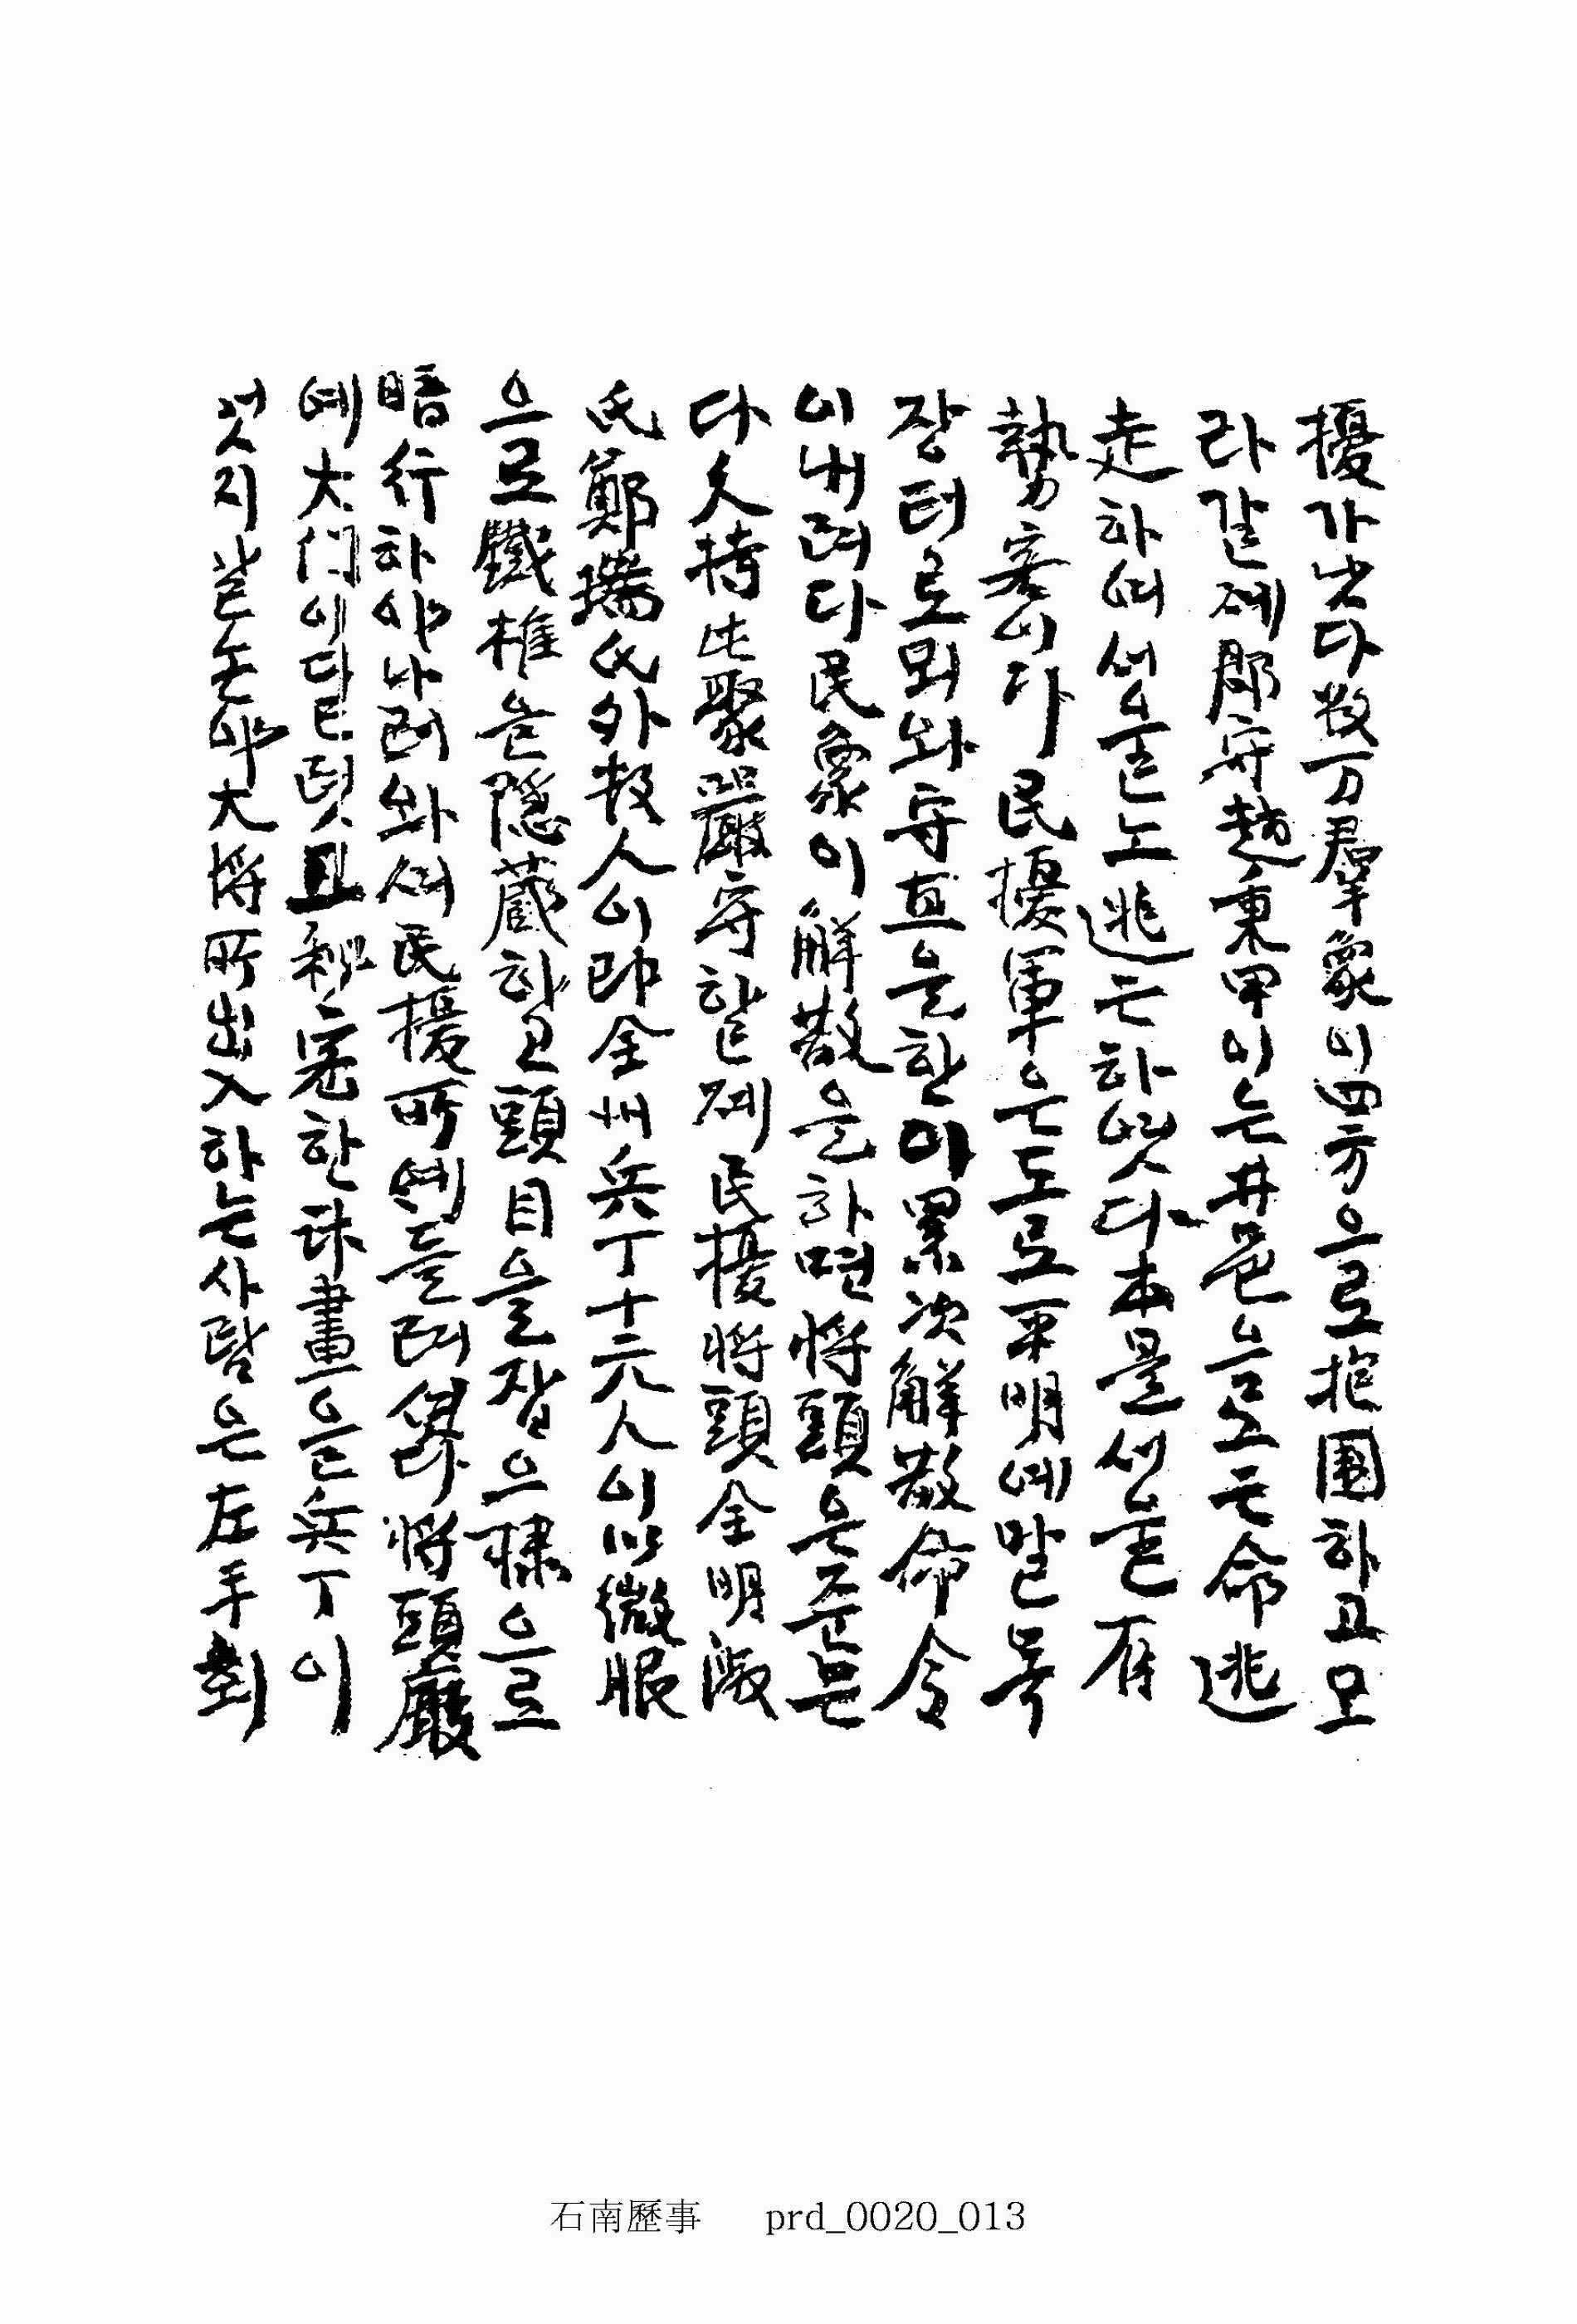 擾가낫다數万羣衆이四方으로抱圍하고모
라갈제郡守趙秉甲이는井邑으로亡命逃
走하며서울노逃亡하엿다本是서울有
勢客이라民擾軍은도로平明에말목
장터로뫼와守直을한이累次解散命令
이내려다民衆이解散을하면將頭은
다久持屯聚嚴守할제民擾將頭全明淑
氏鄭瑞氏外數人이卽全州兵丁十六人이以微服
으로鐵椎을隱藏하고頭目을잡으
暗行하야나려와셔民擾所에들려將頭廳
에大門이다랏且秘密한計畫을兵丁이
大將所出入하는사람은左手